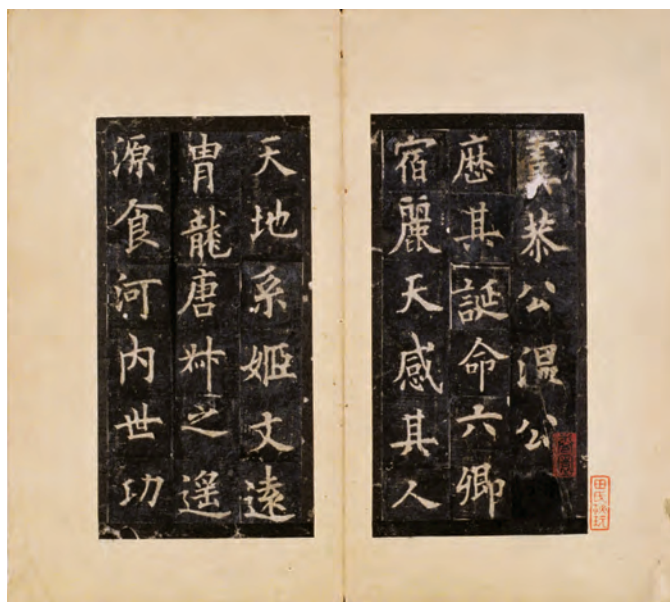 虞恭公温公
厯其誕命六卿
宿麗天感其人
天地系姬文遠
胄龍唐叔之遥
源食河内世功